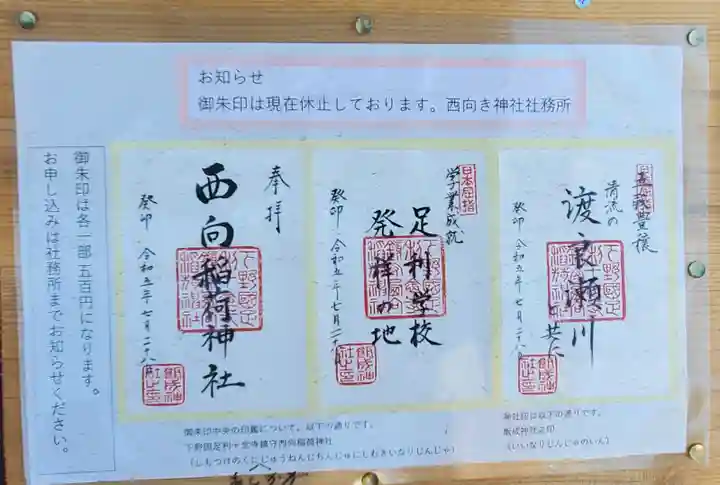 お知らせ
御朱印は現在休止しております。西向き神社社務所
五穀豊穣
清流の
渡良瀬川
と共に
癸卯 令和五年 七月二十八日
日本屈指
学業成就
足利学校
発祥の地
癸卯 令和五年 七月二十八日
奉拝
西向稲荷神社
癸卯 令和五年 七月二十八日
御朱印は各一部 五百円になります。
お申し込みは社務所までお知らせください。
御朱印中央の印鑑について。以下の通りです。
下野国足利十念寺鎮守西向稲荷神社
(しもつけのくにじゅうねんじちんじゅにしむきいなりじんじゃ)
神社印は以下の通りです。
飯成神社之印
(いいなりじんじゃのいん)